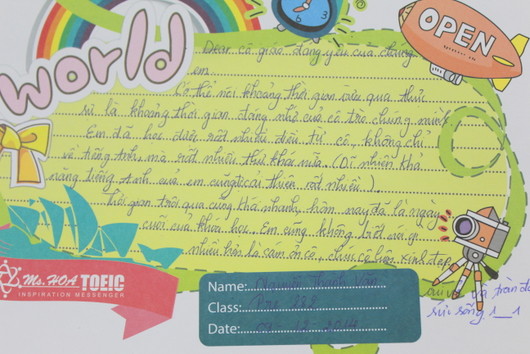 world
OPEN
Dear cô giáo đáng yêu của chúng
em
Có thể nói khoảng thời gian vừa qua thực
sự là khoảng thời gian đáng nhớ của cô trò chúng mình
Em đã học được rất nhiều điều từ cô, không chỉ
về tiếng Anh mà rất nhiều thứ khác nữa (Dĩ nhiên khả
năng tiếng Anh của em cũng cải thiện rất nhiều).
Thời gian trôi qua cũng khá nhanh, hôm nay đã là ngày
cuối của khóa học. Em cũng không biết nói gì
nhiều hơn là cảm ơn cô, chúc cô luôn xinh đẹp,
và tràn đầy
sức sống
Ms. HOA TOEIC
INSPIRATION MESSENGER
Name:
Class: Pre
Date: 12 - 2014